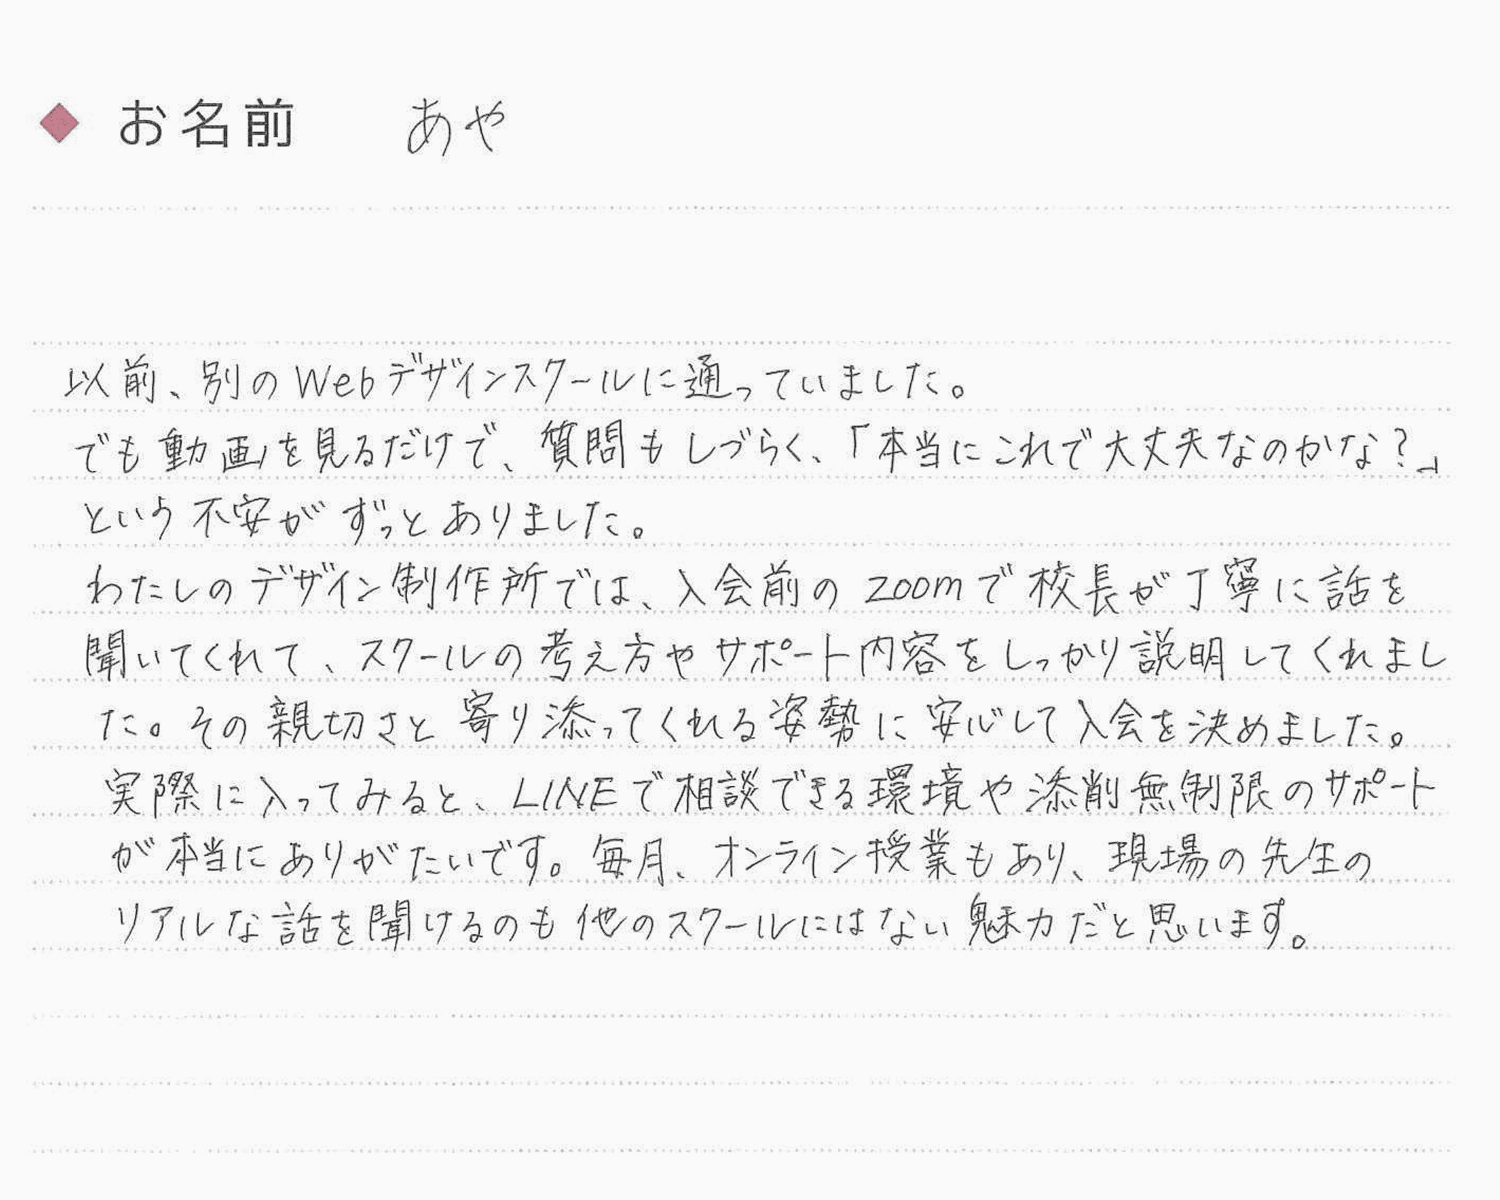 ◆ お名前 あや
以前、別のWebデザインスクールに通っていました。
でも動画を見るだけで、質問もしづらく、「本当にこれで大丈夫なのかな?」
という不安がずっとありました。
わたしのデザイン制作所では、入会前のzoomで校長が丁寧に話を
聞いてくれて、スクールの考え方やサポート内容をしっかり説明してくれまし
た。その親切さと寄り添ってくれる姿勢に安心して入会を決めました。
実際に入ってみると、LINEで相談できる環境や添削無制限のサポート
が本当にありがたいです。毎月、オンライン授業もあり、現場の先生の
リアルな話を聞けるのも他のスクールにはない魅力だと思います。